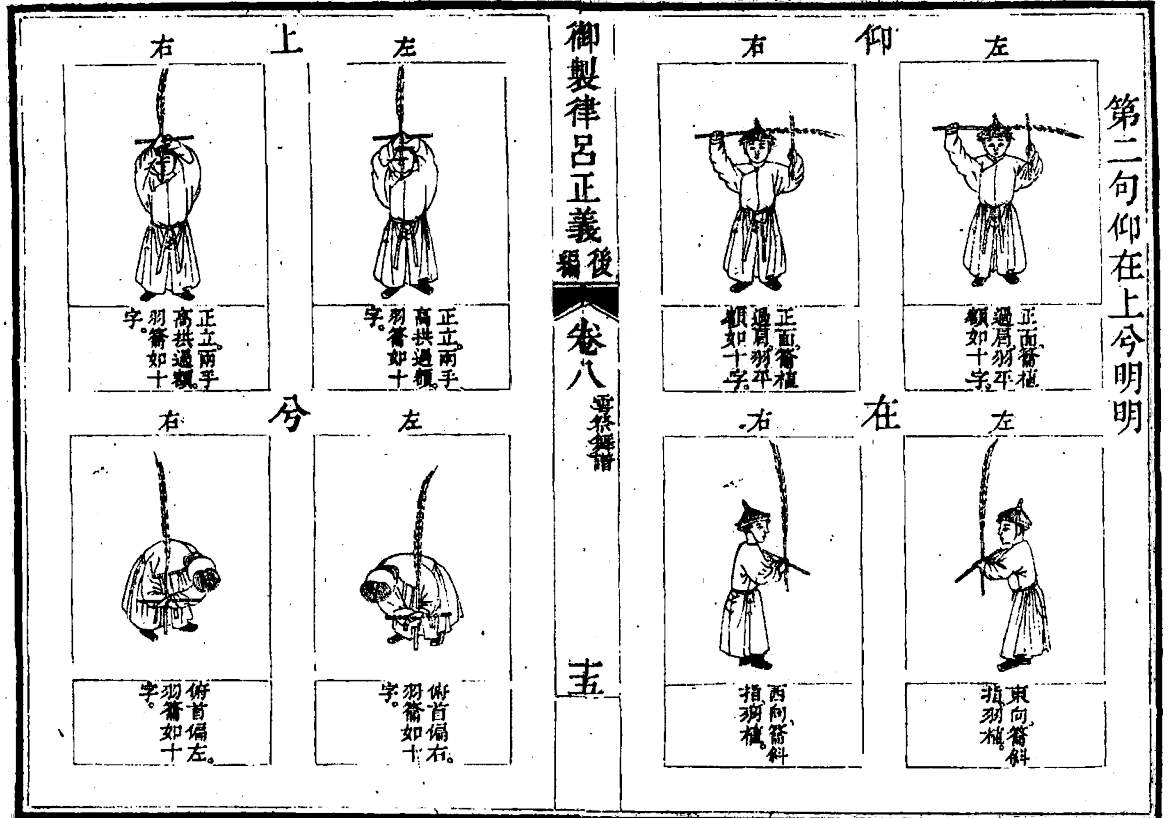 第二句仰在上兮明明
仰
左
正面籥植
過肩羽平
額如十字
右
正面籥植
過肩羽平
額如十字
在
左
東向籥斜
指羽植
右
西向籥斜
指羽植
御製律呂正義後編
卷八
雩祭舞譜
十五
上
左
正立兩手
高拱過額
羽籥如十
字
右
正立兩手
高拱過額
羽籥如十
字
兮
左
俯首偏右
羽籥如十
字
右
俯首偏左
羽籥如十
字